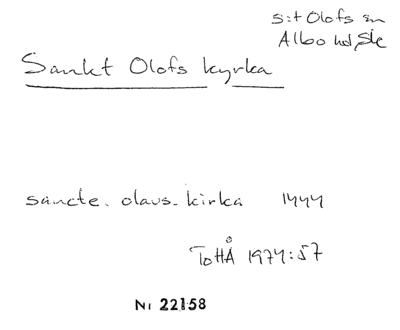 S:t Olofs sn
Albo hd, Sk
Sankt Olofs kyrka
sancte. olaus. kirka 1444
ToHÅ 1974:57
Nr 22158